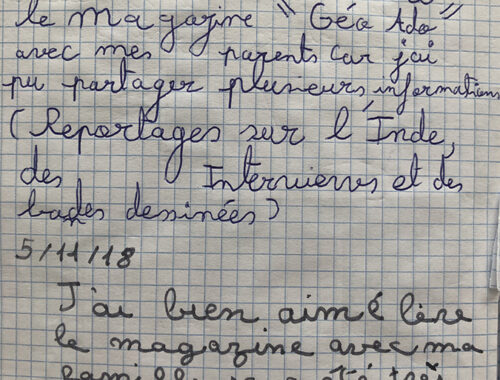 le magazine "Géo Ado"
avec mes parents car j'ai
pu partager plusieurs informations
(Reportages sur l'Inde,
des Interviewes et des
bandes dessinées)
5/11/18
J'ai bien aimé lire
le magazine avec ma
famille